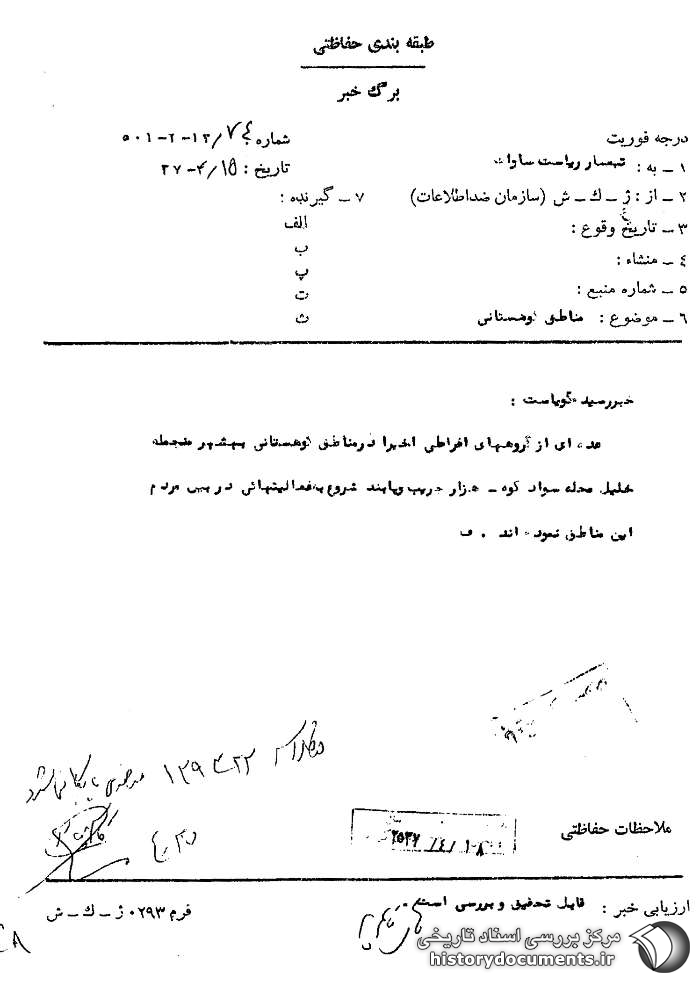 طبقه بندی حفاظتی
برگ خبر
درجه فوریت
شماره ۷۴/۱۲-۲-۵۰۱
۱ – به : تیمسار ریاست ساواك
تاریخ : ۱۵/۴-۳۷
۲ – از : ژ – ك – ش (سازمان ضداطلاعات)
۷ – گیرنده :
۳ – تاریخ وقوع :
الف
ب
۴ – منشاء :
پ
۵ – شماره منبع :
ت
۶ – موضوع : مناطق کوهستانی
ث
خبررسیده گویاست :
عده ای از گروههای افراطی اخیرا درمناطق کوهستانی بهشهر منجمله
خلیل محله سواد کوه – هزار جریب ویابند شروع بفعالیتهائی در بین مردم
این مناطق نموده اند . ف
ملاحظات حفاظتی
۲۵۳۷ /٤/۱۰۸
ارزیابی خبر : قابل تحقیق و بررسی است .
فرم ۰۲۹۳ ژ – ك – ش
مرکز بررسی اسناد تاریخی
historydocuments.ir